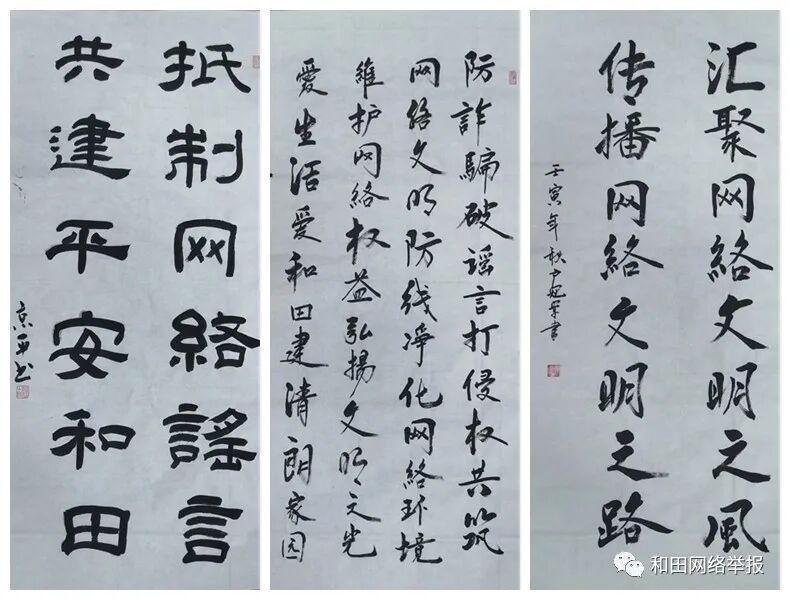 抵制网絡謠言
共建平安和田
防詐騙破谣言打侵权共筑
网絡文明防线净化网絡环境
維护网絡权益弘揚文明之光
愛生活爱和田建清朗家园
汇聚网絡文明之風
传播网絡文明之路
壬寅年秋
和田网络举报